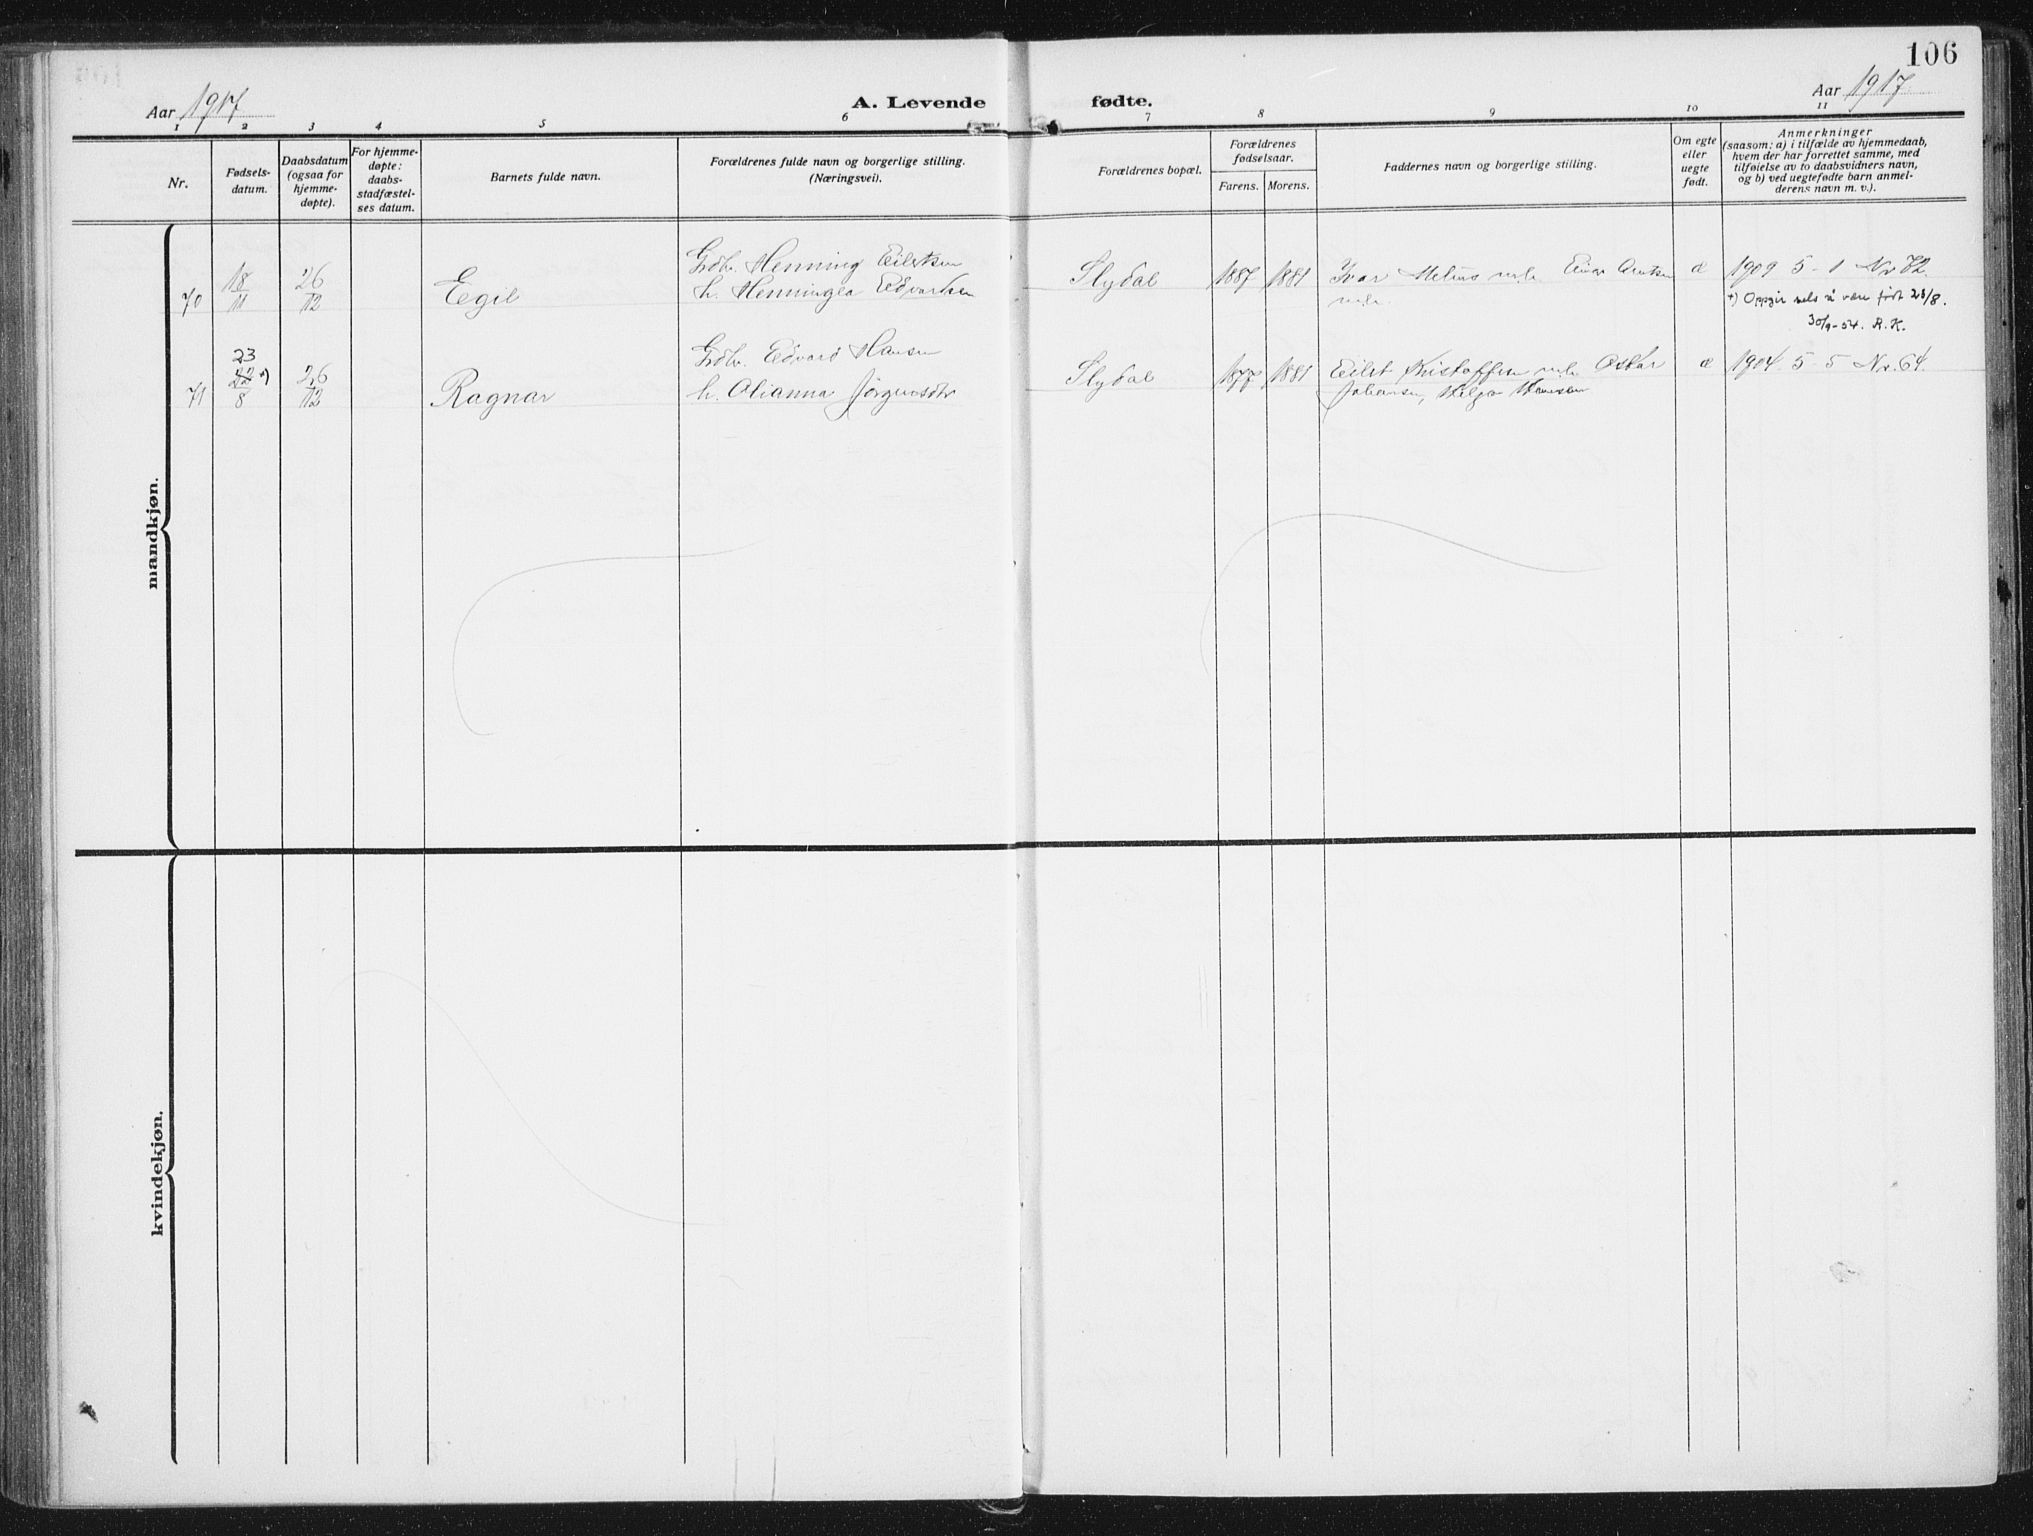 106
Aar 1917
A. Levende fødte.
Aar 1917
1 2 3 4 5 6 7 8 9 10 11
Nr.
Fødsels-
datum.
Daabsdatum
(ogsaa for
hjemme-
døpte).
For hjemme-
døpte:
daabs-
stadfæstel-
ses datum.
Barnets fulde navn.
Forældrenes fulde navn og borgerlige stilling.
(Næringsvei).
Forældrenes bopæl.
Forældrenes
fødselsaar.
Farens. Morens.
Faddernes navn og borgerlige stilling.
Om egte
eller
uegte
født.
Anmerkninger
(saasom: a) i tilfælde av hjemmedaab,
hvem der har forrettet samme, med
tilføielse av to daabsvidners navn,
og b) ved uegtefødte barn anmel-
derens navn m. v.).
mandkjøn.
70 18/11 26/12 Egil
Grdbr. Henning Eilertsen
h. Henningea Edvartsen
Slydal 1887 1881
Ivar Melius m.h. Einar
m.h.
æ
1909 5-1 Nr 72.
*) Oppgir selv å være født 23/8.
30/9-54. R.K.
71 23 22/8 *) 26/12 Ragnar
Grdbr. Edvard Hansen
h. Olianna Jørgensdtr
Slydal 1877 1881
Eilet Kristoffersen m.h. Oskar
Johansen, Helga Hansen
æ
1904 5-5 Nr. 64.
kvindekjøn.